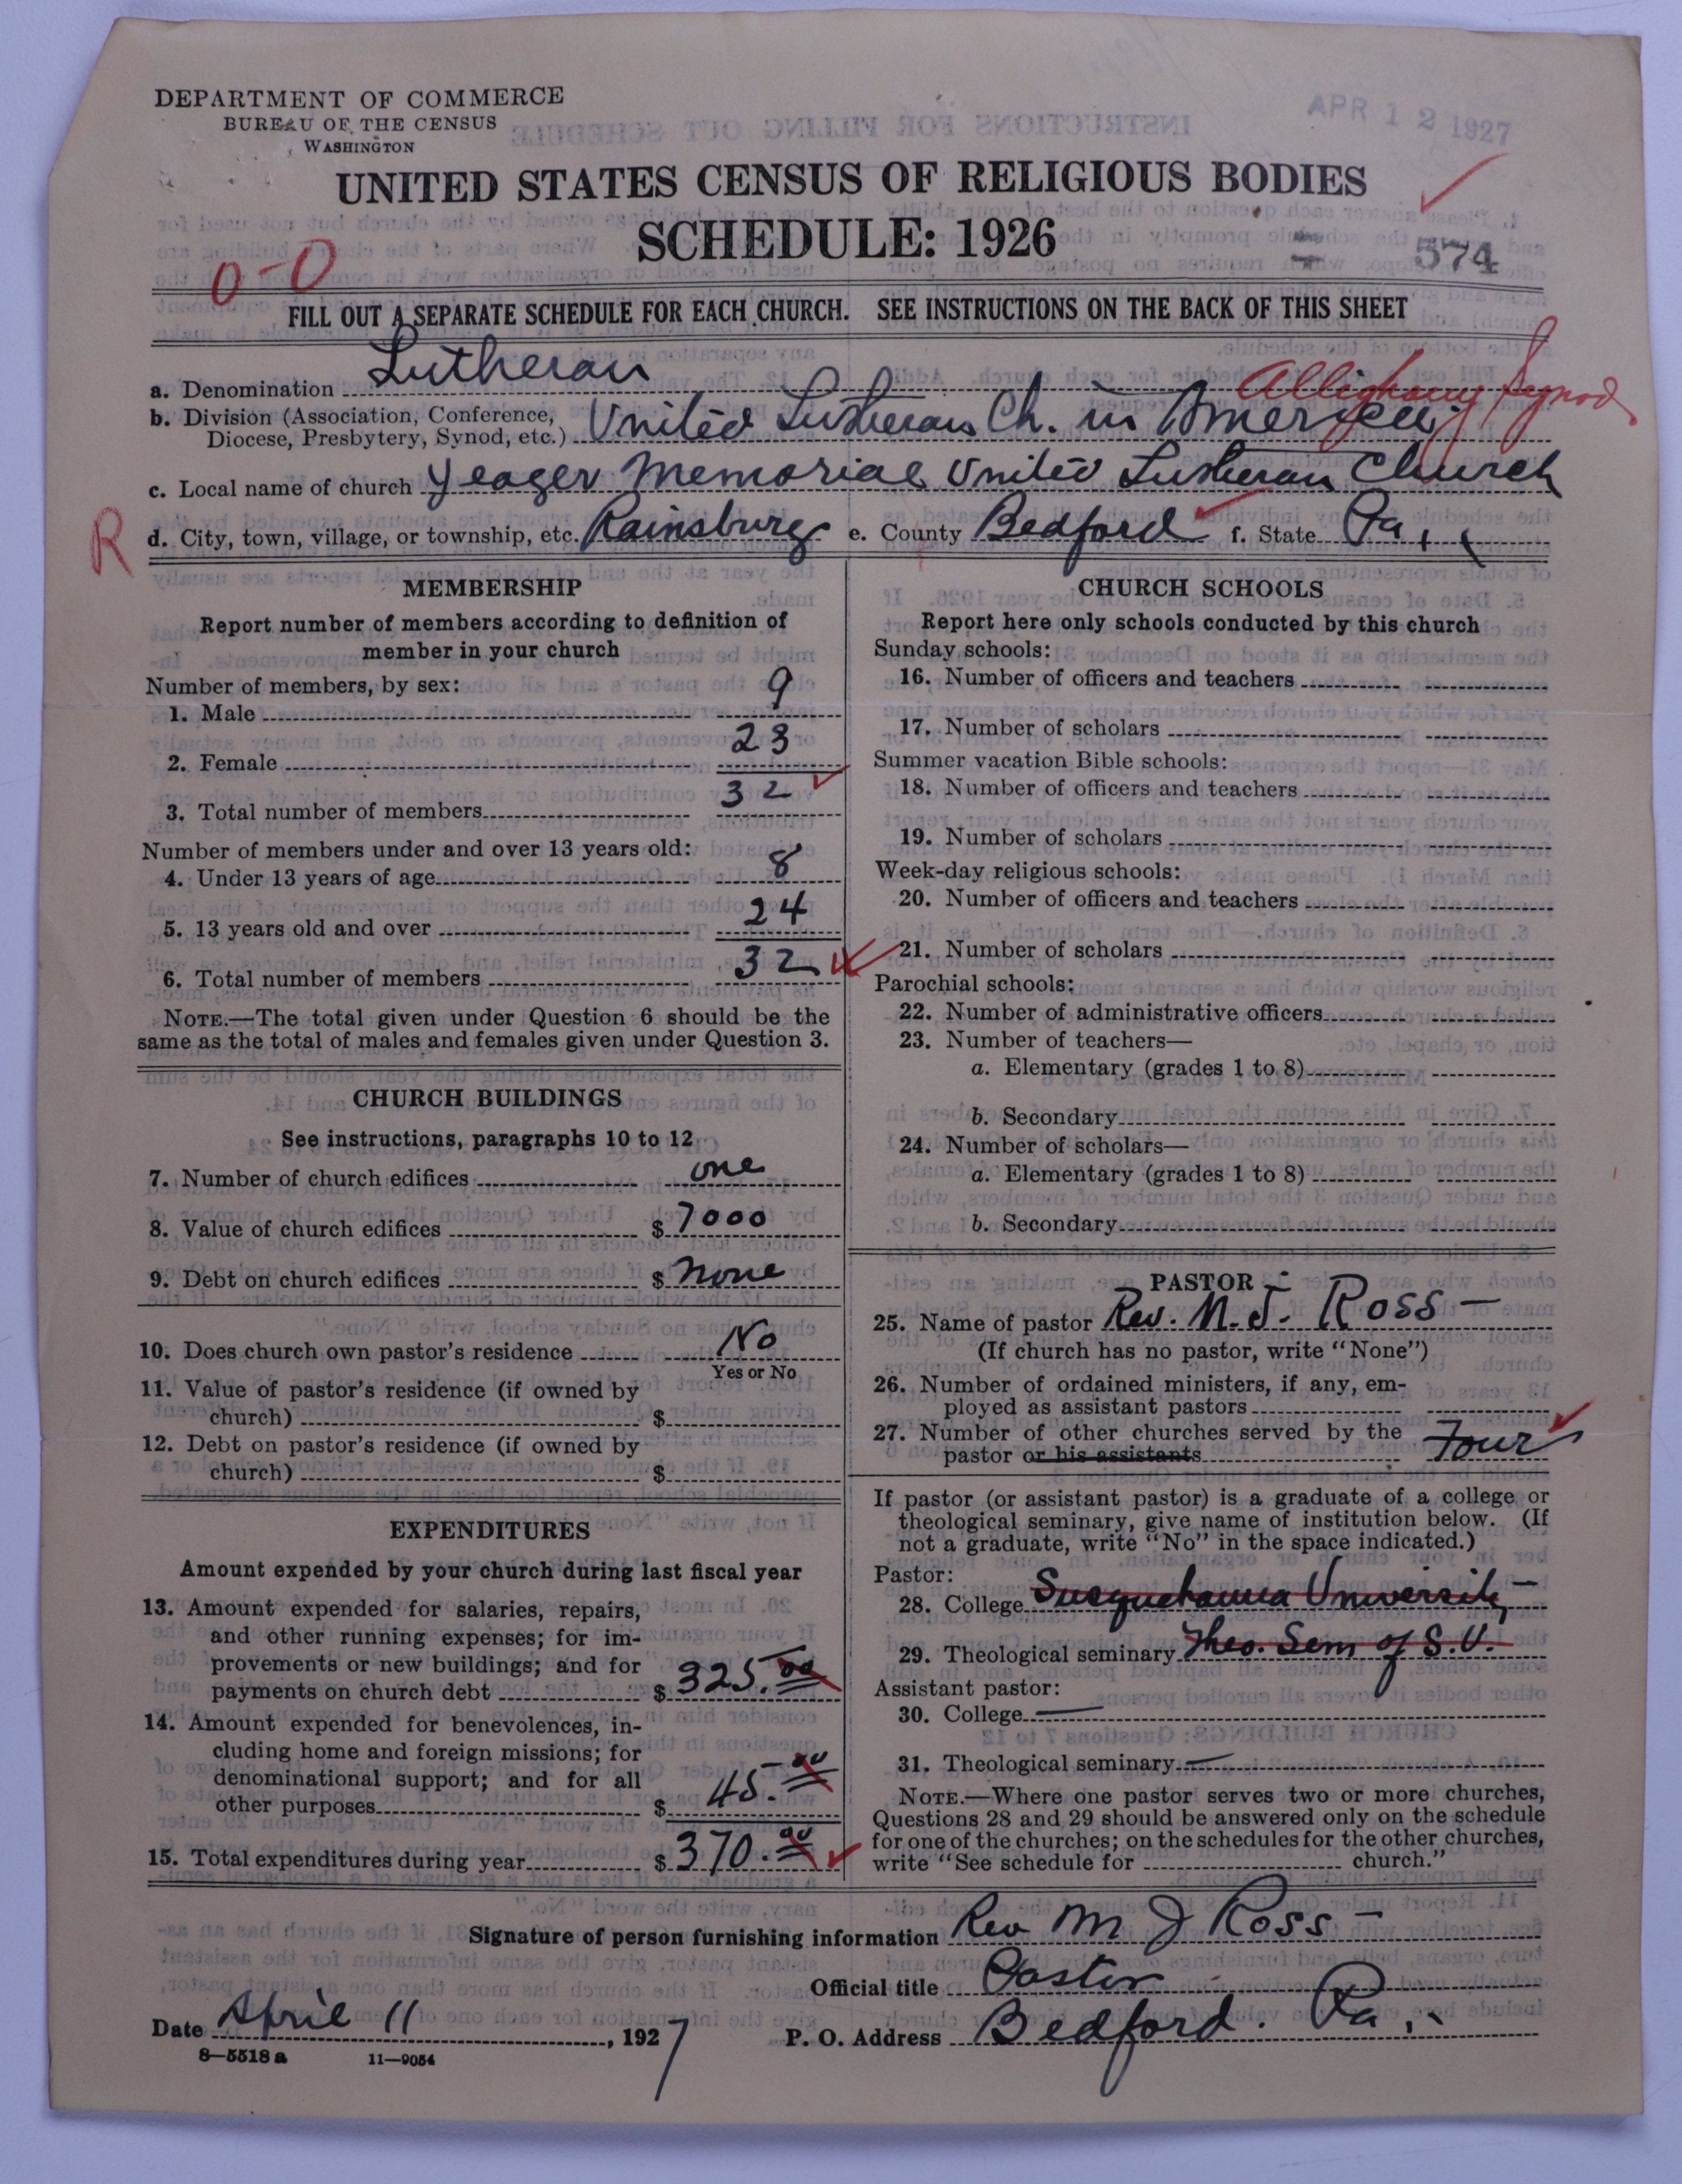 DEPARTMENT OF COMMERCE
BUREAU OF THE CENSUS
WASHINGTON
APR 12 1927
UNITED STATES CENSUS OF RELIGIOUS BODIES
SCHEDULE: 1926
574
0-0
FILL OUT A SEPARATE SCHEDULE FOR EACH CHURCH. SEE INSTRUCTIONS ON THE BACK OF THIS SHEET
a. Denomination Lutheran
Allighany Synod
b. Division (Association, Conference,
Diocese, Presbytery, Synod, etc.) United Lutheran Ch. in America
c. Local name of church Yeager Memorial United Lutheran Church
R
d. City, town, village, or township, etc. Rainsburg e. County Bedford f. State Pa.
MEMBERSHIP
Report number of members according to definition of
member in your church
Number of members, by sex:
1. Male 9
2. Female 23
3. Total number of members 32
Number of members under and over 13 years old:
4. Under 13 years of age 8
5. 13 years old and over 24
6. Total number of members 32
NOTE.—The total given under Question 6 should be the
same as the total of males and females given under Question 3.
CHURCH BUILDINGS
See instructions, paragraphs 10 to 12
7. Number of church edifices one
8. Value of church edifices $ 7000
9. Debt on church edifices $ none
10. Does church own pastor's residence No
Yes or No
11. Value of pastor's residence (if owned by
church) $
12. Debt on pastor's residence (if owned by
church) $
EXPENDITURES
Amount expended by your church during last fiscal year
13. Amount expended for salaries, repairs,
and other running expenses; for im-
provements or new buildings; and for
payments on church debt $ 325.00
14. Amount expended for benevolences, in-
cluding home and foreign missions; for
denominational support; and for all
other purposes $ 45.00
15. Total expenditures during year $ 370.00
CHURCH SCHOOLS
Report here only schools conducted by this church
Sunday schools:
16. Number of officers and teachers
17. Number of scholars
Summer vacation Bible schools:
18. Number of officers and teachers
19. Number of scholars
Week-day religious schools:
20. Number of officers and teachers
21. Number of scholars
Parochial schools:
22. Number of administrative officers
23. Number of teachers—
a. Elementary (grades 1 to 8)
b. Secondary
24. Number of scholars—
a. Elementary (grades 1 to 8)
b. Secondary
PASTOR
25. Name of pastor Rev. M. J. Ross
(If church has no pastor, write "None")
26. Number of ordained ministers, if any, em-
ployed as assistant pastors
27. Number of other churches served by the
pastor or his assistants Four
If pastor (or assistant pastor) is a graduate of a college or
theological seminary, give name of institution below. (If
not a graduate, write "No" in the space indicated.)
Pastor:
28. College Susquehanna University
29. Theological seminary Theo. Sem of S.U.
Assistant pastor:
30. College —
31. Theological seminary —
NOTE.—Where one pastor serves two or more churches,
Questions 28 and 29 should be answered only on the schedule
for one of the churches; on the schedules for the other churches,
write "See schedule for church."
Signature of person furnishing information Rev M J Ross
Official title Pastor
Date April 11, 1927 P. O. Address Bedford. Pa.
8—5518 a 11—9054